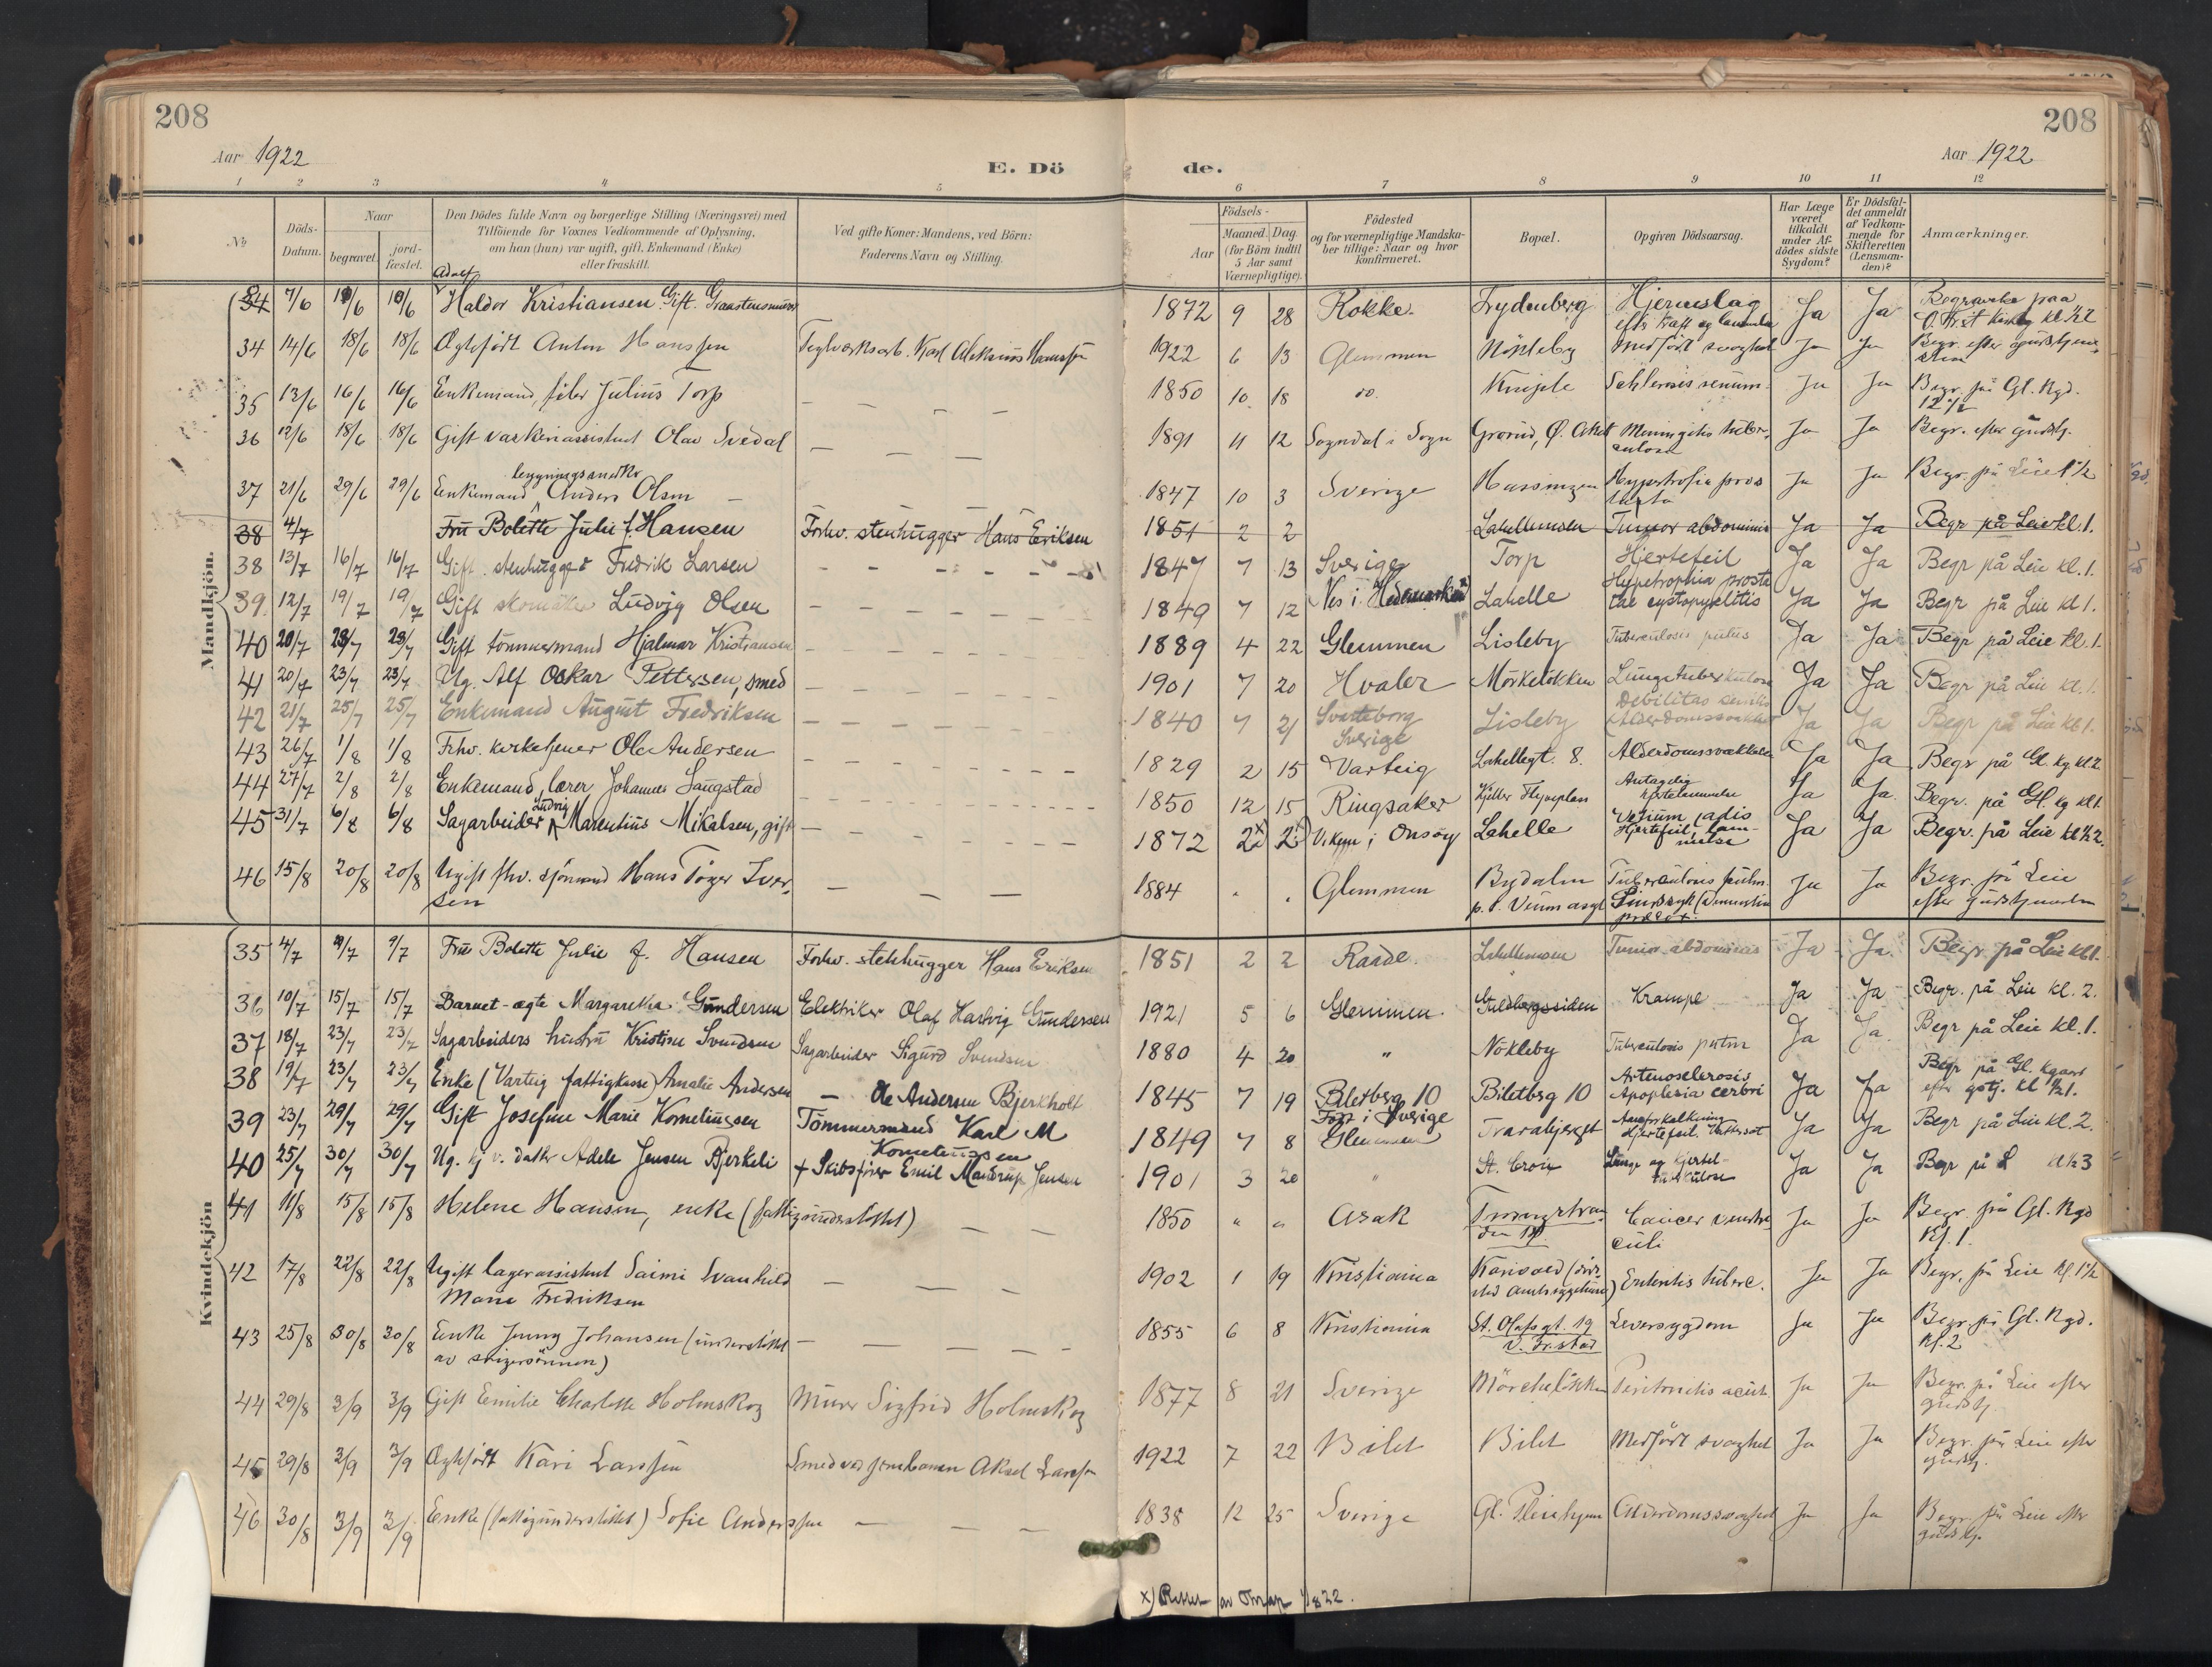 208
208
Aar 1922
E. Dö
de.
Aar 1922
1 2 3 4 5 6 7 8 9 10 11 12
No
Döds-Datum.
Naar
begravet.
jord-fæstet.
Den Dödes fulde Navn og borgerlige Stilling (Næringsvei) med
Tilföiende for Voxnes Vedkommende af Oplysning,
om han (hun) var ugift, gift, Enkemand (Enke)
eller fraskilt.
Ved gifte Koner: Mandens, ved Börn:
Faderens Navn og Stilling.
Födsels-
Aar
Maaned. Dag.
(for Börn indtil
5 Aar samt
Værnepligtige).
Födested
og for værnepligtige Mandska-
ber tillige: Naar og hvor
konfirmeret.
Bopæl.
Opgiven Dödsaarsag.
Har Læge
været
tilkaldt
under Af-
dödes sidste
Sygdom?
Er Dödsfal-
det anmeldt
af Vedkom-
mende for
Skifteretten
(Lensman-
den)?
Anmærkninger.
Mandkjön.
Adolf
34 7/6 Haldor Kristiansen Gift. 1872 9 28 Rokke. Frydenberg Hjerneslag Ja Ja Begravede paa
34 14/6 18/6 18/6 Ægtefødt Anton Hanssen Teglverksarb. Karl Aleksius Hanssen 1922 6 13 Glemmen Nökleby Medfödt svaghet Ja Ja Begr. efter gudstjenesten
35 13/6 16/6 16/6 Enkemand, Julius Torp 1850 10 18 do. Kniple Ja Ja Begr. på Gl. Kgd.
12 1/2
36 12/6 18/6 18/6 Gift vaskeriassistent Olav Svedal 1891 11 12 Sogndal i Sogn Grorud, Ø. Aker Meningitis tuber-
culosa Ja Ja Begr. efter gudstj.
37 21/6 29/6 29/6 Enkemand Anders Olsen 1847 10 3 Sverige Hassingen Hypertrofia pros
tata Ja Ja Begr. på Leie 1 1/2
38 4/7 Fru Bolette Julie f. Hansen Forhv. stenhugger Hans Eriksen 1851 2 2 Lahellemoen Tumor abdominis Ja Ja Begr på Leie kl. 1.
38 13/7 16/7 16/7 Gift. stenhugger Fredrik Larsen 1847 7 13 Sverige Torp Hjertefeil Ja Ja Begr på Leie kl. 1.
39. 12/7 19/7 19/7 Gift skomaker Ludvig Olsen 1849 7 12 Nes i Hedemarken Lahelle Hypetrophia prosta
tae cystopyelitis Ja Ja Begr på Leie kl 1.
40 20/7 23/7 23/7 Gift tömmermand Hjalmar Kristiansen 1889 4 22 Glemmen Lisleby Tuberculosis pulm Ja Ja Begr på Leie kl. 1.
41 20/7 23/7 23/7 Ug. Alf Oskar Pettersen, smed 1901 7 20 Hvaler Mörkelökken Lungetuberkulose Ja Ja Begr på Leie kl. 1.
42 21/7 25/7 25/7 Enkemand August Fredriksen 1840 7 21 Svarteborg
Sverige Lisleby Debilitas senilis
Ja Ja Begr på Leie kl 1.
43 26/7 1/8 1/8 Fhv. kirketjener Ole Andersen 1829 2 15 Varteig Lahellegt. 8. Alderdomssvakkelse Ja Ja Begr på Gl. kg kl 2
44 27/7 2/8 2/8 Enkemand, lærer Johannes Saugstad 1850 12 15 Ringsaker Kjeller Flyveplass Antagelig
Ja Ja. Begr. på Gl. kg kl 1.
45 31/7 6/8 6/8 Sagarbeider Ludvig Marentius Mikalsen, gift 1872 2x 2x) Viken i Onsöy Lahelle Vitium cordis
Hjertefeil, Ja Ja Begr. på Leie kl 1/2 2.
46 15/8 20/8 20/8 Ugift fhv. sjömand Hans Töger Iver-
sen 1884 Glemmen Bydalen
p.t. Veum asyl Tuberculosis pulm.
Sindssyk Ja Ja Begr. på Leie
efter gudstjenesten
Kvindekjön
35 4/7 9/7 9/7 Fru Bolette Julie f. Hansen Forhv. stenhugger Hans Eriksen 1851 2 2 Raade. Lahellemoen Tumor abdominis Ja Ja. Begr. på Leie kl 1.
36 10/7 15/7 15/7 Barnet - ægte Margaretha Gundersen Elektriker Olaf Hartvig Gundersen 1921 5 6 Glemmen. Guldbergssiden Krampe Ja Ja Begr. på Leie kl. 2.
37 18/7 23/7 23/7 Sagarbeiders hustru Kristine Svendsen Sagarbeider Sigurd Svendsen 1880 4 20 " Nökleby Tuberculosis pulm Ja Ja. Begr på Leie kl. 1.
38 19/7 23/7 23/7 Enke (Varteig fattigkasse) Amalie Andersen — Ole Andersen Bjerkholt 1845 7 19 Biletbsg 10
Född i Sverige Biletbsg 10 Arteriosclerosis
Apoplexia cerbri Ja Ja Begr på Gl. Kgaard
efter gstj. kl 1/2 1.
39 23/7 29/7 29/7 Gift Josefine Marie Korneliussen Tömmermand Karl M
Korneliussen 1849 7 8 Glemmen Tvarabjerget Aareforkalkning
Hjertefeil. Vattersot Ja Ja Begr på Leie kl. 2.
40 25/7 30/7 30/7 Ug. hj v. datter Adele Jensen Bjerkeli + Skibsförer Emil Mandrup Jensen 1901 3 20 " St. Croix Lunge og kjertel-
tuberkulose Ja Ja Begr på L kl 3
41 11/8 15/8 15/8 Helene Hansen, enke (fattigunderstöttet) 1850 " " Asak Cancer ventri
culi Ja Ja Begr. på Gl. Kgd
Kl. 1.
42 17/8 22/8 22/8 Ugift lagerassistent Saimi Svanhild
Marie Fredriksen 1902 1 19 Kristiania Enteritis tuberc. Ja Ja Begr. på Leie Kl. 1 1/2
43 25/8 30/8 30/8 Enke Jenny Johansen (understöttet
av svigersönnen) 1855 6 8 Kristiania St. Olafsgt. 19
V. Fr.stad Leversygdom Ja Ja Begr. på Gl. Kgd.
Kl. 2
44 29/8 3/9 3/9 Gift Emilie Charlotte Holmskog Murer Sigfrid Holmskog 1877 8 21 Sverige Mörchelökken Peritonitis acut. Ja Ja Begr. på Leie efter
gudstj.
45 29/8 3/9 3/9 Ægtefödt Kari Larssen Smed ved jernbanen Aksel Larssen 1922 7 22 Bilet Bilet Medfödt svaghet Ja Ja Begr. på Leie efter
gudstj.
46 30/8 3/9 3/9 Enke (fattigunderstöttet) Sofie Anderssen 1838 12 25 Sverige Gl. Pleiehjem Alderdomssvaghet Ja Ja Begr. på Leie efter
gudstj.
x) Rettet av